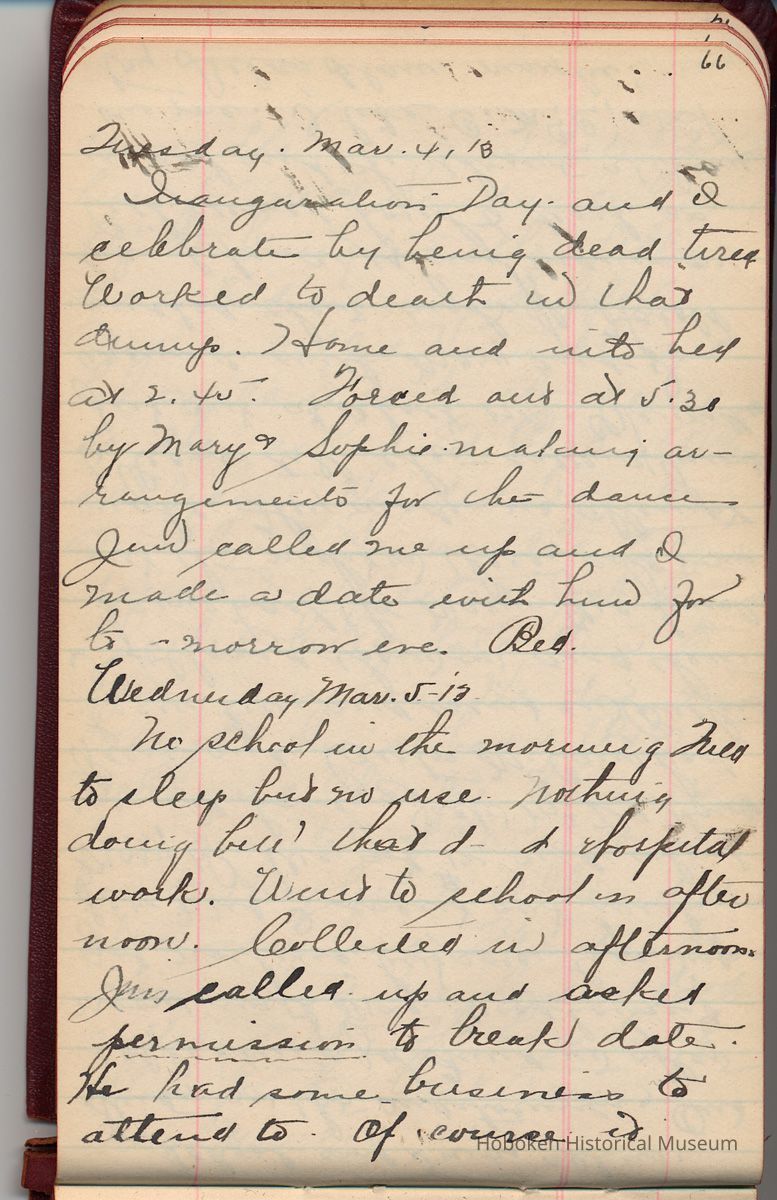 66
Tuesday. Mar. 4, 13
Inauguration Day. and I
celebrate by being dead tired
Worked to death in that
dump. Home and into bed
at 2.45. Forced out at 5.30
by Mary & Sophie making ar-
rangements for the dance
Jim called me up and I
made a date with him for
to-morrow eve. Bed.
Wednesday Mar. 5-13
No school in the morning Tried
to sleep but no use. Nothing
doing but that d- d hospital
work. Went to school in after
noon. Collected in afternoon.
Jim called up and asked
permission to break date.
He had some business to
attend to. Of course it
Hoboken Historical Museum